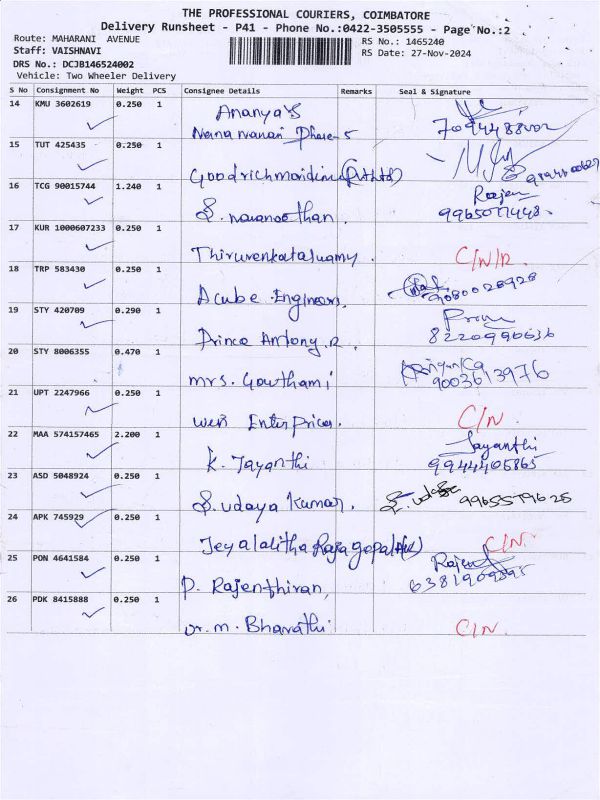 THE PROFESSIONAL COURIERS, COIMBATORE
Delivery Runsheet - P41 - Phone No.:0422-3505555 - Page No.:2
Route: MAHARANI AVENUE
RS No.: 1465240
Staff: VAISHNAVI
RS Date: 27-Nov-2024
DRS No.: DCJB146524002
Vehicle: Two Wheeler Delivery
S No Consignment No Weight PCS Consignee Details Remarks Seal & Signature
14 KMU 3602619 0.250 1 Ananya's
Phase-5
15 TUT 425435 0.250 1
(Pvt Ltd)
16 TCG 90015744 1.240 1 Rajen
S. 9965077448.
17 KUR 1000607233 0.250 1
Thiruvenkataswamy C/N/R.
18 TRP 583430 0.250 1
Acube Engineers. 9080028928
19 STY 420709 0.290 1
Prince Antony.R. 8220996636
20 STY 8006355 0.470 1
mrs. Gowthami 9003613976
21 UPT 2247966 0.250 1
Enterprices. C/N
22 MAA 574157465 2.200 1 Jayanthi
K. Jayanthi 9944405865
23 ASD 5048924 0.250 1
S. udaya Kumar. 9965579625
24 APK 745929 0.250 1
Jeyalalitha Rajagopal C/N.
25 PON 4641584 0.250 1 Rajen
P. Rajenthiran,
26 PDK 8415888 0.250 1
Dr. m. Bharathi C/N.